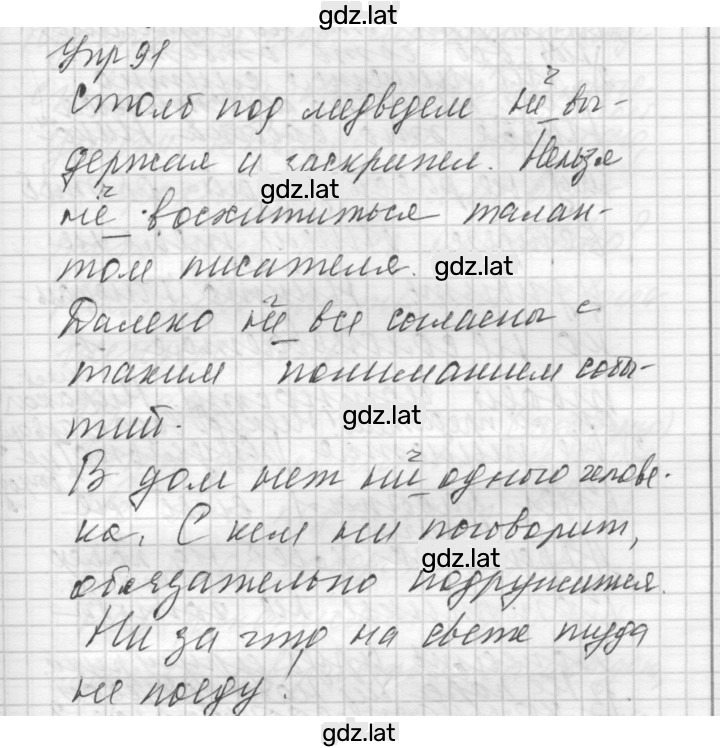 gdz.lat
Упр 91
Столб под медведем не вы-
держал и заскрипел. Нельзя
gdz.lat
не восхититься талан-
том писателя.
gdz.lat
Далеко не все согласны с
таким пониманием собы-
тий.
gdz.lat
В дом нет ни одного челове-
ка. С кем ни поговорит,
gdz.lat
обязательно подружится.
Ни за что на свете туда
не поеду!
gdz.lat